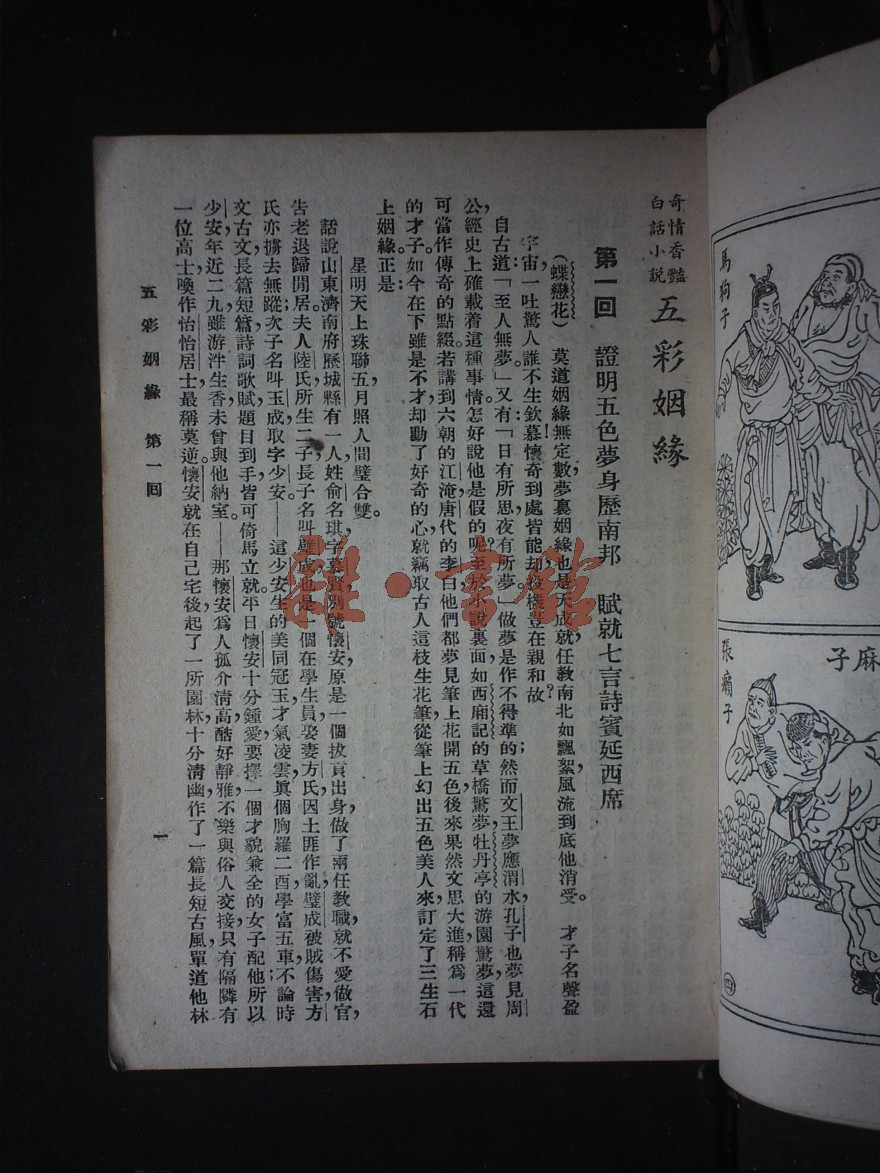 奇情香豔
白話小說
五彩姻緣
第一回　證明五色夢身歷南邦　賦就七言詩賓延西席
（蝶戀花）　莫道姻緣無定數，夢裏姻緣也是天成就。任教南北如飄絮，風流到底他消受。　才子名聲盈
宇宙，一吐驚人誰不生欽慕！懷奇到處皆能却，投機豈在親和故？
自古道：「至人無夢。」又有「日有所思，夜有所夢。」做夢是作不得準的；然而文王夢應渭水，孔子也夢見周
公，經史上確載着這種事情，怎好說他是假的呢？至於小說裏面，如西廂記的草橋驚夢，牡丹亭的游園驚夢，這還
可當作傳奇的點綴。若講到六朝的江淹，唐代的李白，他們都夢見筆上花開五色，後來果然文思大進，稱爲一代
的才子。如今在下雖是不才，却動了好奇的心，就竊取古人這枝生花筆，從筆上幻出五色美人來，訂定了三生石
上姻緣。正是：
星明天上珠聯五，月照人間璧合雙。
話說山東濟南府歷城縣有一人，姓俞名琪，字慕賢，別號懷安，原是一個拔貢出身，做了兩任教職，就不愛做官，
告老退歸閒居。夫人陸氏，所生二子：長子名叫璧成，也是一個在學生員，娶妻方氏，因土匪作亂，璧成被賊傷害，方
氏亦擄去無蹤；次子名叫玉成，取字少安。——這少安生的美同冠玉，才氣凌雲，眞個胸羅二酉，學富五車；不論時
文古文，長篇短篇，詩詞歌賦，題目到手，皆可倚馬立就。平日懷安十分鍾愛，要擇一個才貌兼全的女子配他，所以
少安年近二九，雖游泮生香，未曾與他納室。——那懷安爲人孤介清高，酷好靜雅，不樂與俗人交接，只有隔隣有
一位高士，喚作怡怡居士，最稱莫逆。懷安就在自己宅後，起了一所園林，十分清幽，作了一篇長短古風，單道他林
五彩姻緣　第一回
一
馬狗子
張癩子
麻子
四
雜·書館